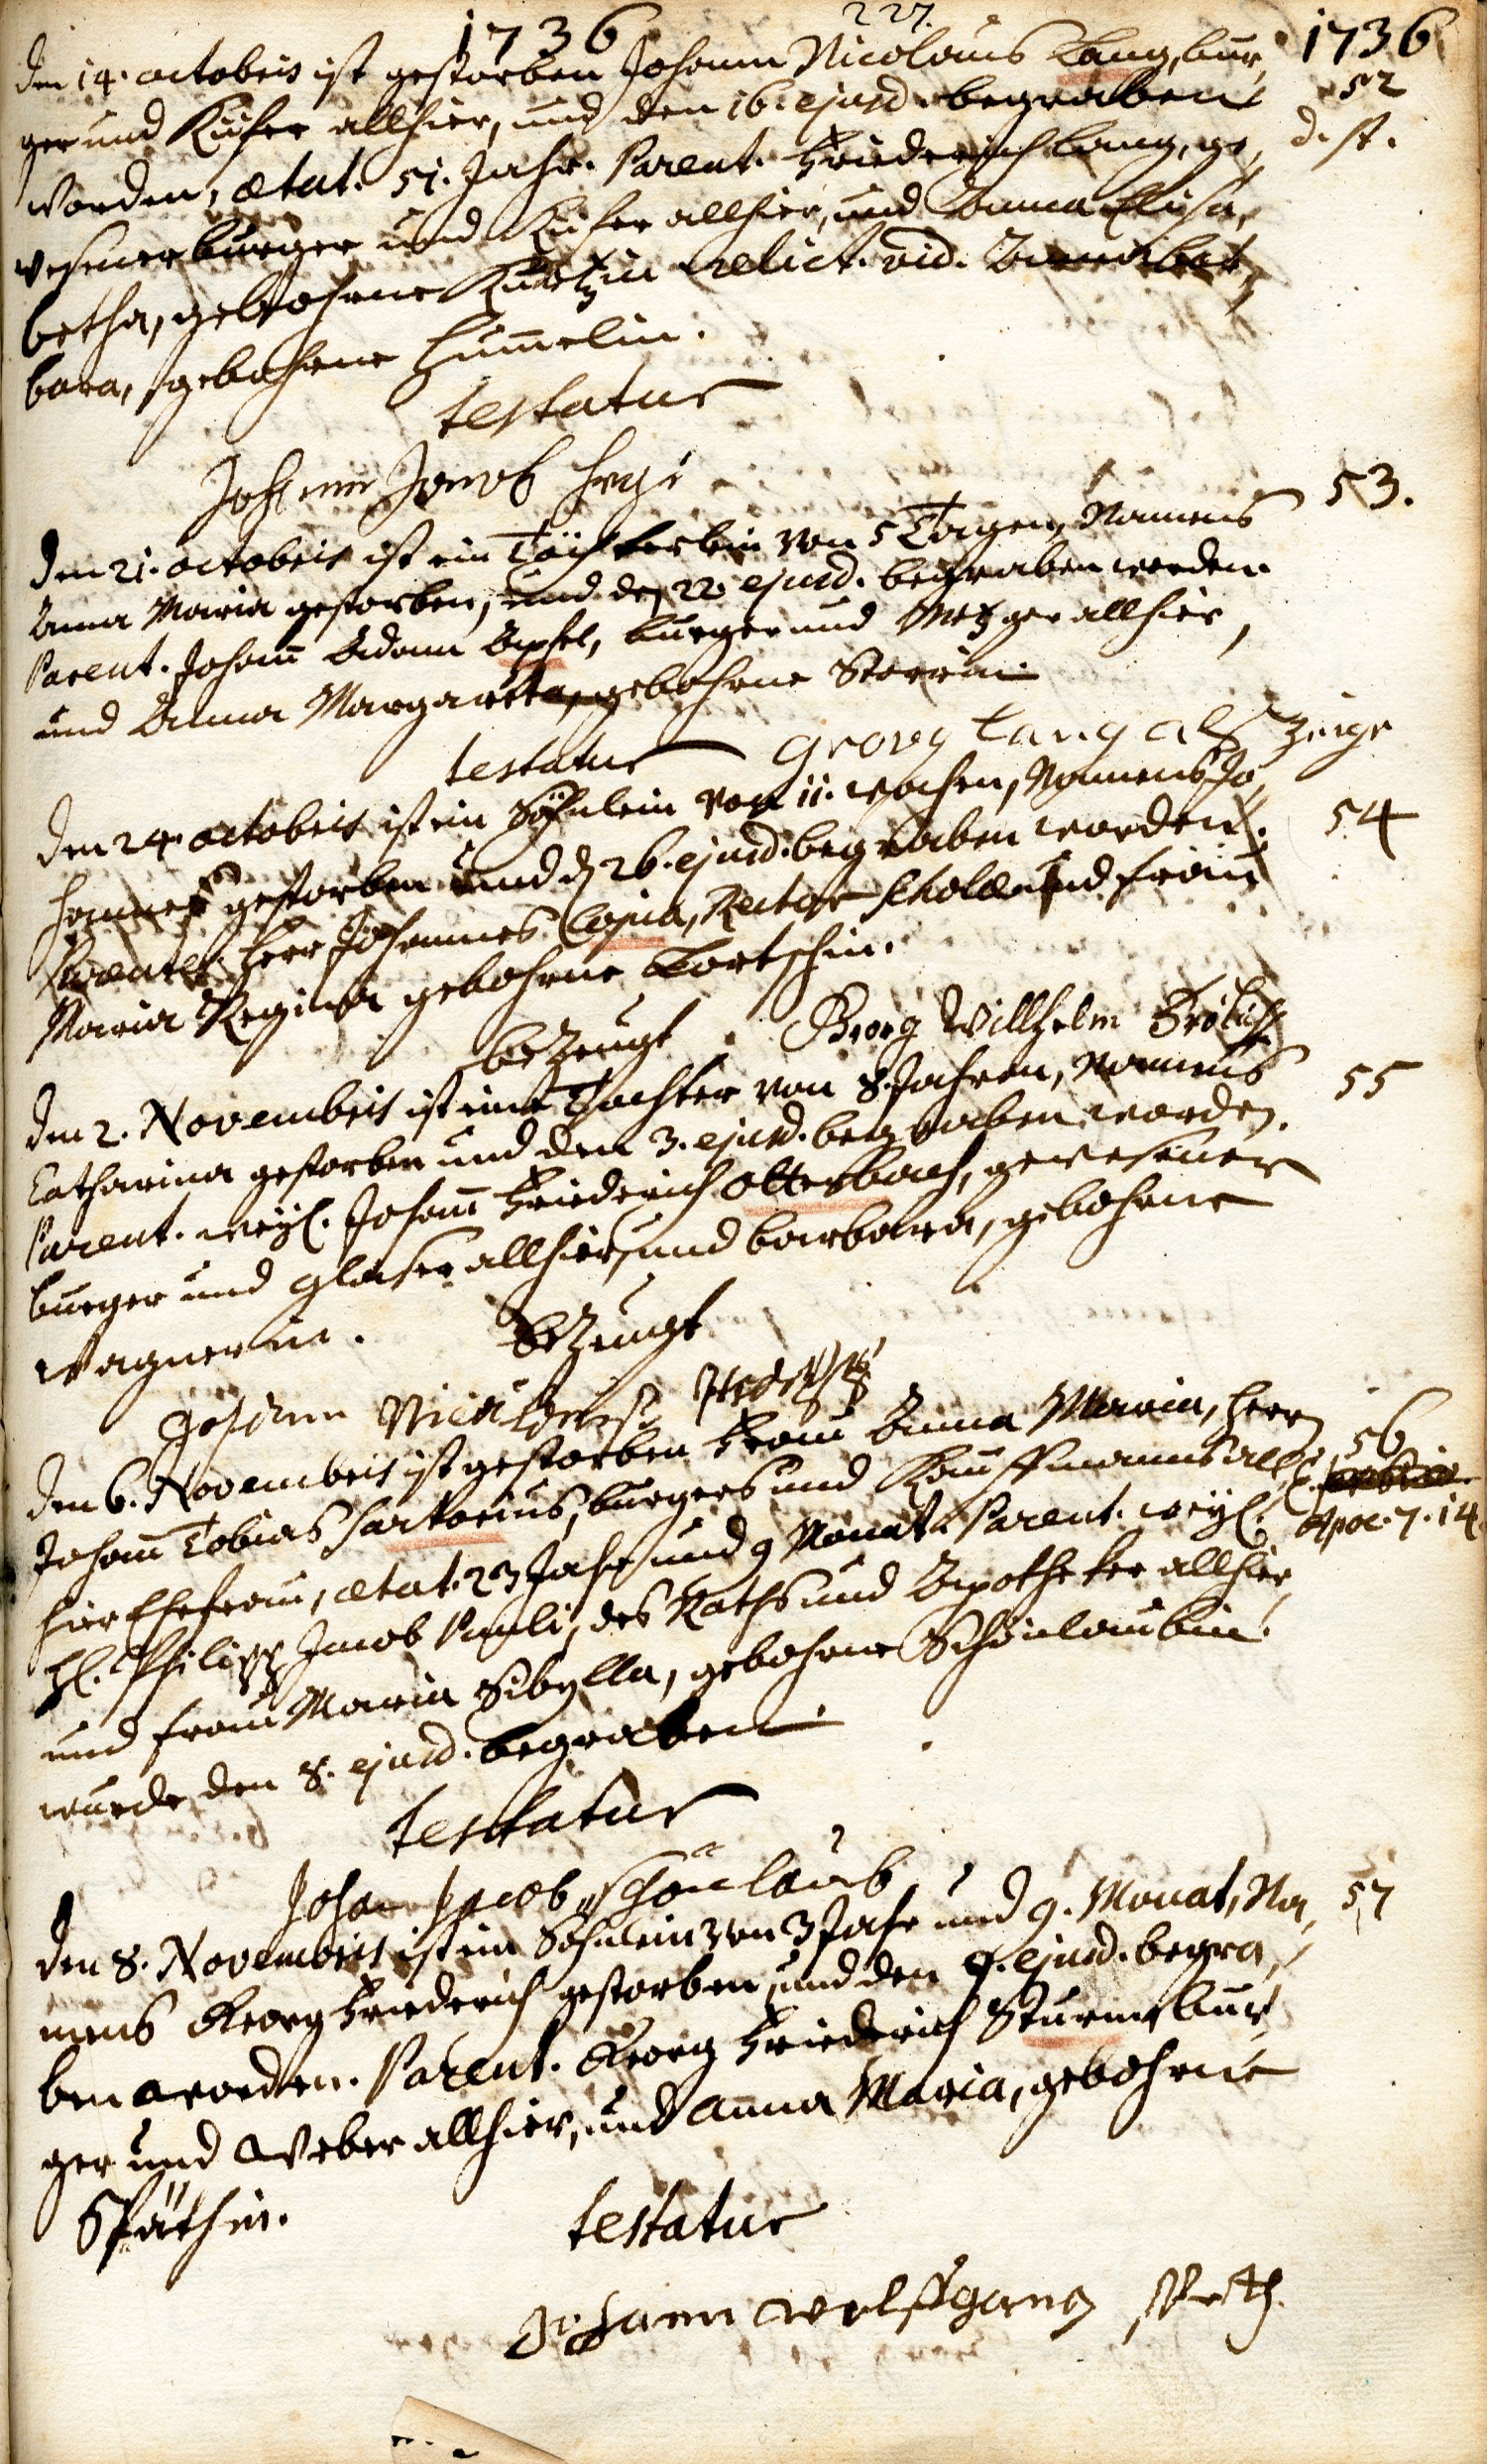 1736 227. 1736
den 14. octobris ist gestorben Johann Nicolaus Lang, bur,
ger und Küfer allhier, und den 16. ejusd. begraben 52
worden, ætat. 51. Jahr. Parent. Friederich Lang, ge, d. st.
wesener burger und Küfer allhier, und Anna Elisa,
betha, gebohrne Kurtzin relict. vid. Anna Bar,
bara, gebohrne Hummelin.
testatur
Johann Jacob
den 21. octobris ist ein Töchterlein von 5 Tagen, Namens 53.
Anna Maria gestorben, und den 22. ejusd. begraben worden.
Parent. Johann Adam Apfel, burger und Metzger allhier,
und Anna Margareta, gebohrne Storrin.
testatur Georg Lang als Zeige
den 24. octobris ist ein Söhnlein von 11. wochen, Namens Jo, 54
hannes gestorben und d. 26. ejusd. begraben worden.
Parentes Herr Johannes Copia, Rector scholæ und frau
Maria Regina gebohrne Bortschin.
bezeugt Georg Willhelm
den 2. Novembris ist eine Tochter von 8. Jahren, Namens 55
Catharina gestorben und den 3. ejusd. begraben worden.
Parent. weyl. Johann Friederich Ottersbach, gewesener
burger und glaser allhier, und barbara, gebohrne
Wagnerin. bezeugt
Johann Nicklaus
den 6. Novembris ist gestorben Frau Anna Maria, Herrn 56
Johann Tobias Sartorius, burgers und Kauffmanns all,
hier Ehefrau, ætat. 23 Jahr und 9 Monat. Parent. weyl. Apoc. 7. 14.
H. Philipp Jacob Pauli, des Raths und Apotheker allhier,
und frau Maria Sibylla, gebohrne Schönlaubin.
wurde den 8. ejusd. begraben.
testatur
Johan Jacob Schönlaub
den 8. Novembris ist ein Söhnlein von 3 Jahr und 9. Monat, Na, 57
mens Georg Friederich gestorben, und den 9. ejusd. begra,
ben worden. Parent. Georg Friederich Sturm, bur,
ger und Weber allhier, und Anna Maria, gebohrne
Späthin. testatur
Johann wolffgang